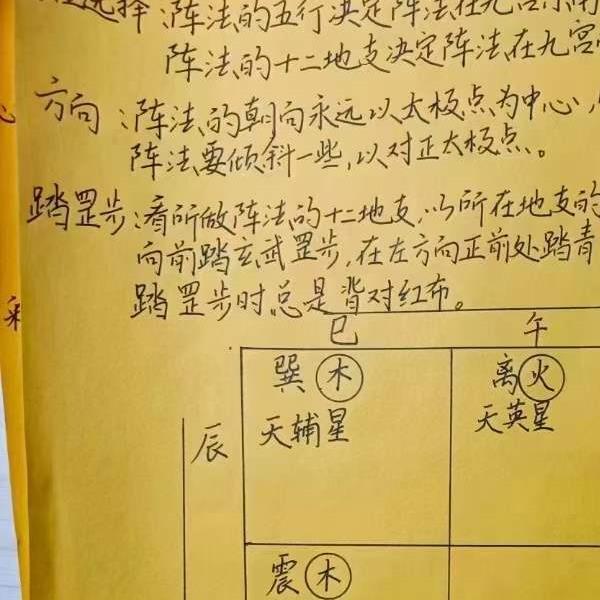 选择:阵法的五行决定阵法在九宫
阵法的十二地支决定阵法在九宫
方向:阵法的朝向永远以太极点为中心,
阵法要倾斜一些,以对正太极点。
踏罡步:看所做阵法的十二地支,以所在地支的
向前踏玄武罡步,在左方向正前处踏青
踏罡步时总是背对红布。
巳 午
巽 木 离 火
天辅星 天英星
辰
震 木